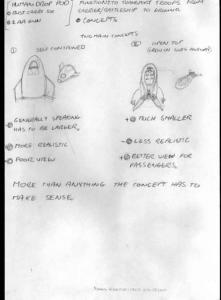 HUMAN DROP POD
FUNCTION: TO TRANSPORT TROOPS FROM
CARRIER/BATTLESHIP TO GROUND
CONCEPTS
TWO MAIN CONCEPTS
① SELF CONTAINED
② OPEN TOP
GENERALLY SPEAKING
HAS TO BE LARGER.
MORE REALISTIC
POOR VIEW
+ MUCH SMALLER
- LESS REALISTIC
+ BETTER VIEW FOR
PASSENGERS.
MORE THAN ANYTHING THE CONCEPT HAS TO
MAKE SENSE.